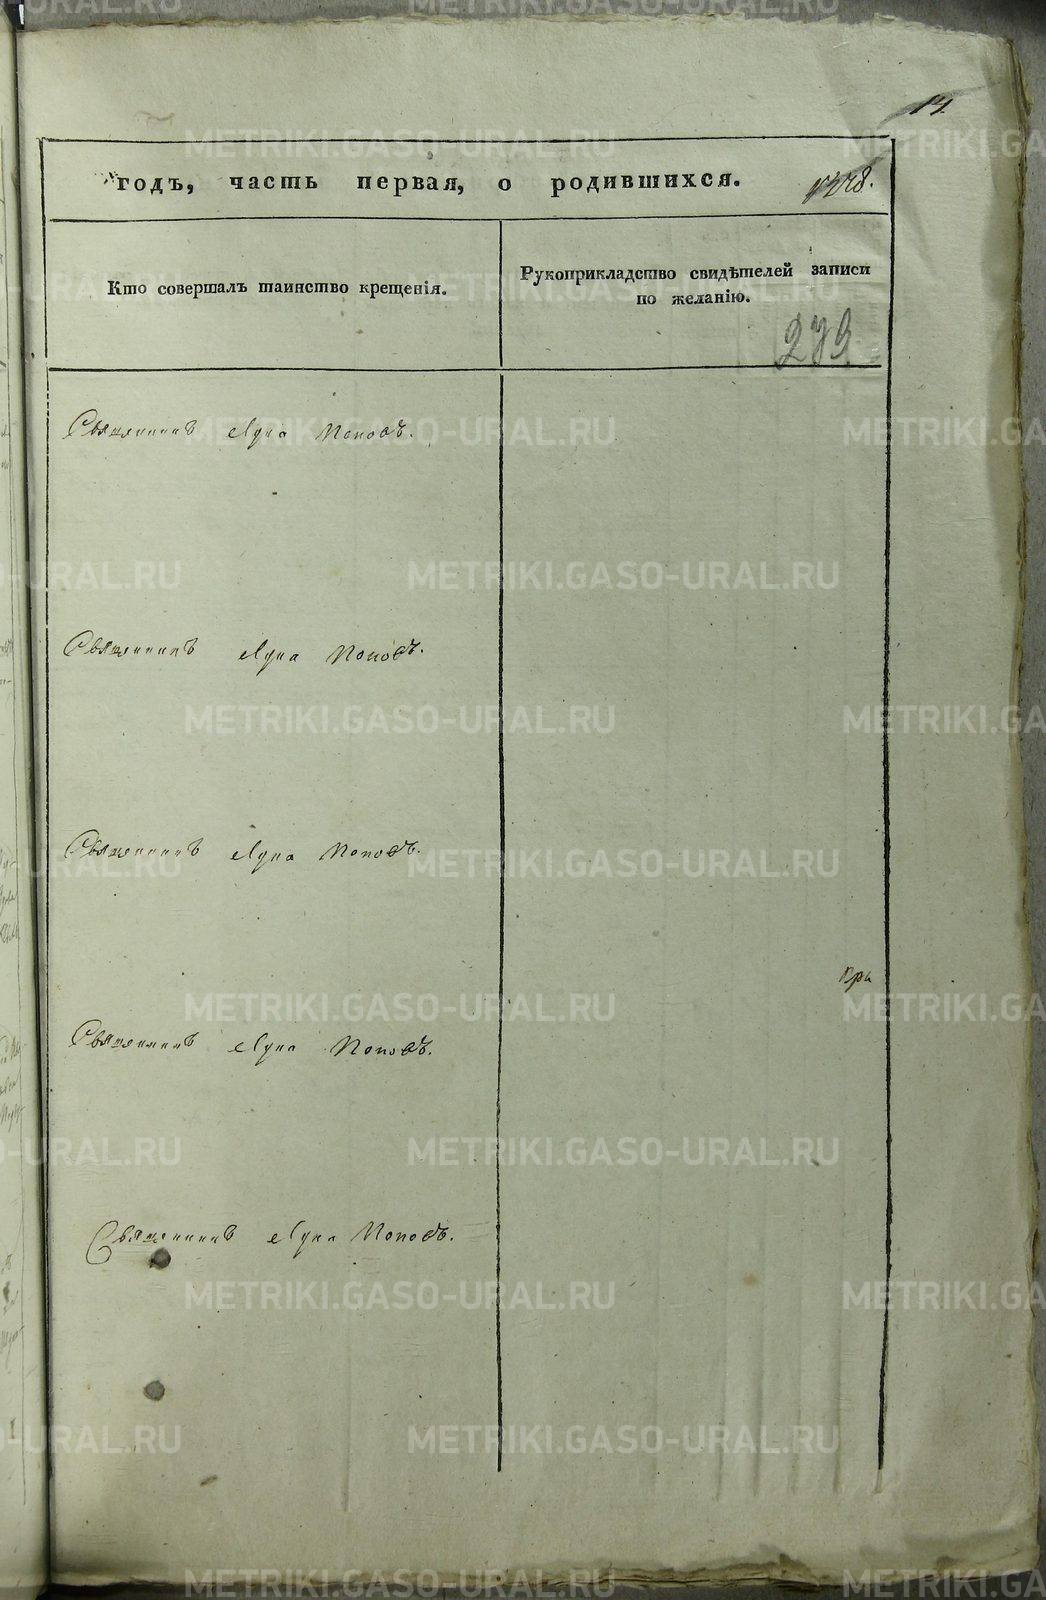 14.
годъ, часть первая, о родившихся.
Кто совершалъ таинство крещенія.
Рукоприкладство свидѣтелей записи
по желанію.
279
Священникъ Лука Поповъ.
Священникъ Лука Поповъ.
Священникъ Лука Поповъ.
кръ
Священникъ Лука Поповъ.
Священникъ Лука Поповъ.
METRIKI.GASO-URAL.RU